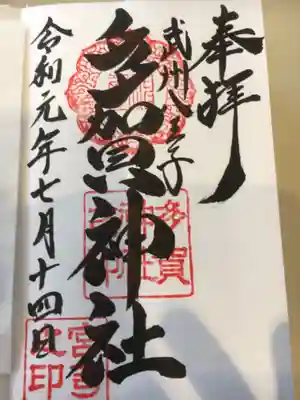 奉拝
武州八王子
多賀神社
令和元年七月十四日
多賀
神社
宮司
之印